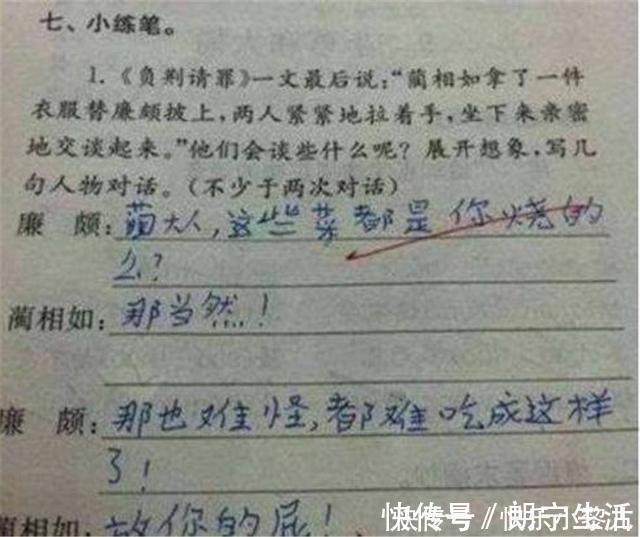 七、小练笔。
1.《负荆请罪》一文最后说:“蔺相如拿了一件
衣服替廉颇披上,两人紧紧地拉着手,坐下来亲密
地交谈起来。”他们会谈些什么呢?展开想象,写几
句人物对话。(不少于两次对话)
廉 颇:蔺大人,这些菜都是你烧的
么?
蔺相如:那当然!
廉 颇:那也难怪,都难吃成这样
了!
蔺相如:放你的屁!
快传号/朗宁生活